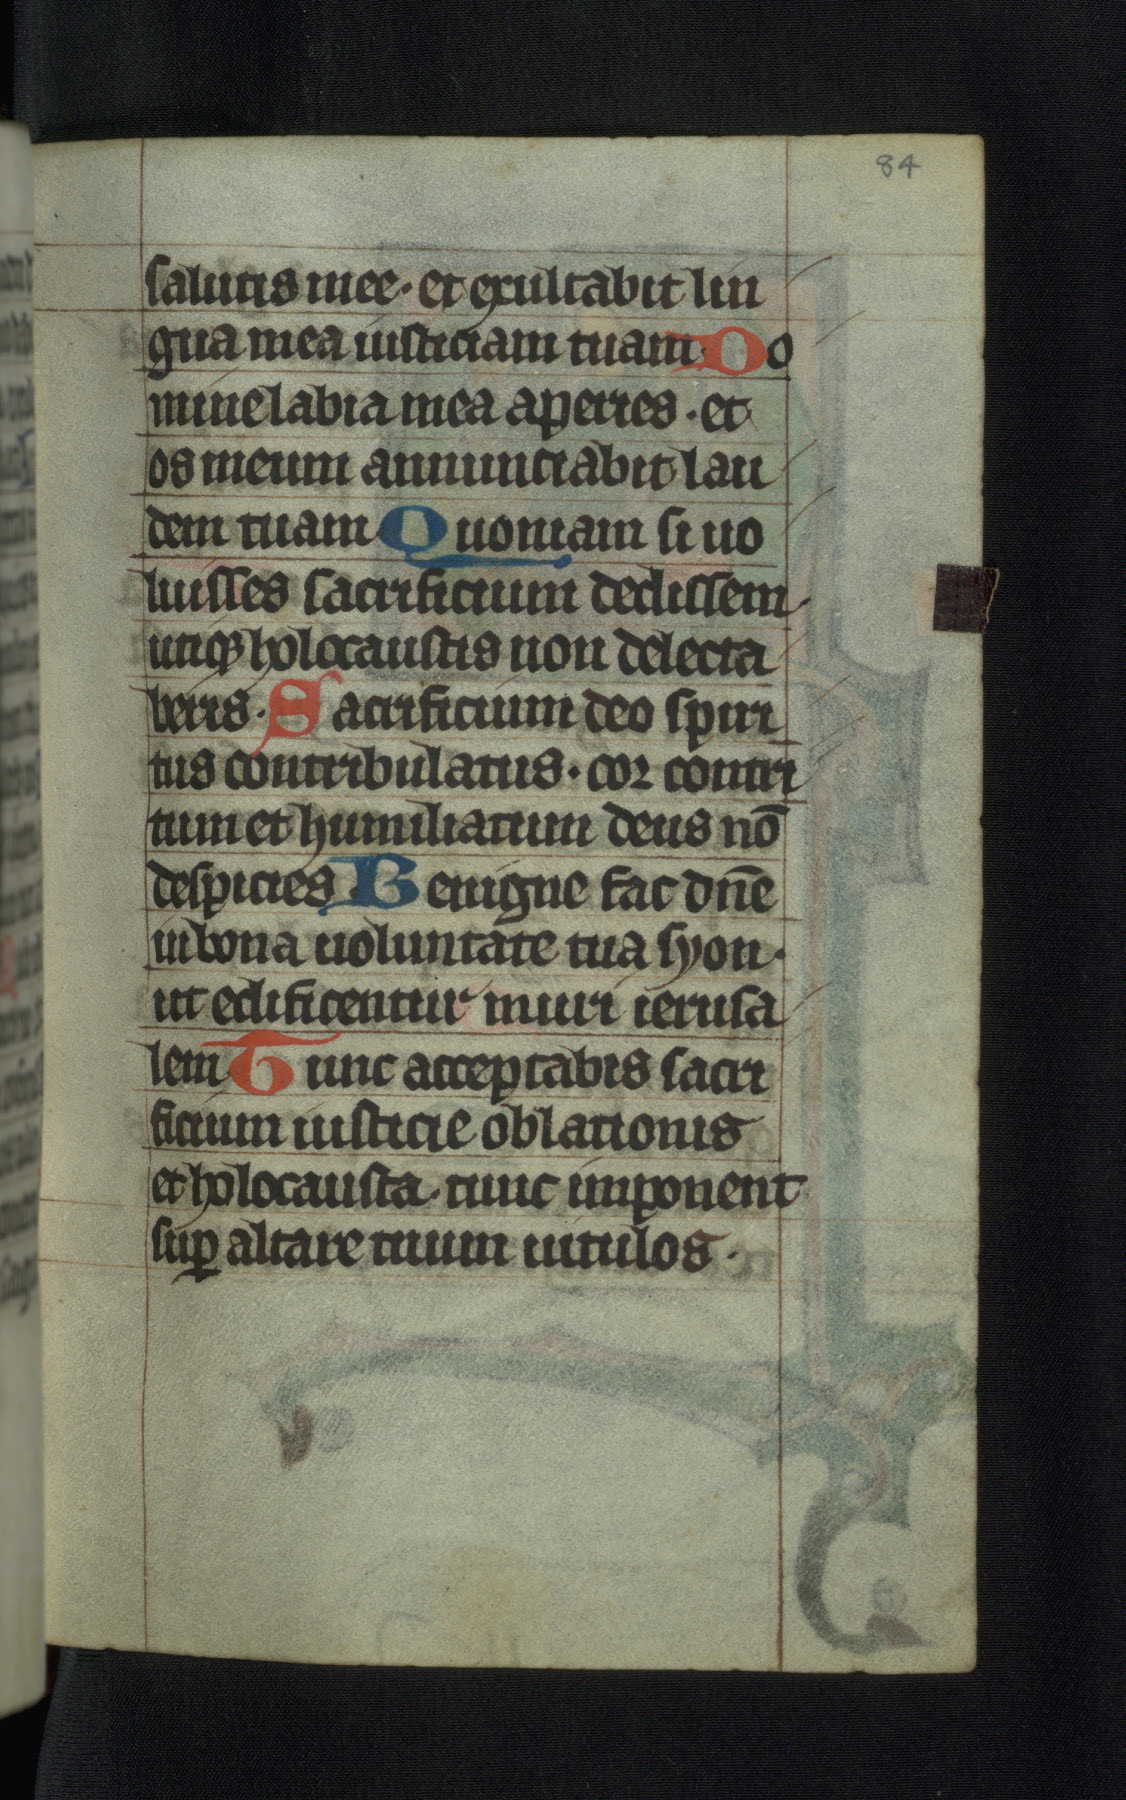 84
salutis mee · et exultabit lin
gua mea iusticiam tuam · Do
mine labia mea aperies · et
os meum annunciabit lau
dem tuam Quoniam si uo
luisses sacrificium dedissem ·
utiqꝫ holocaustis non delecta
beris · Sacrificium deo spiri
tus contribulatus · cor contri
tum et humiliatum deus nō
despicies Benigne fac dn̄e
in bona uoluntate tua syon ·
ut edificentur muri ierusa
lem Tunc acceptabis sacri
ficium iusticie oblationis
et holocausta · tunc imponent
suꝑ altare tuum uitulos ·